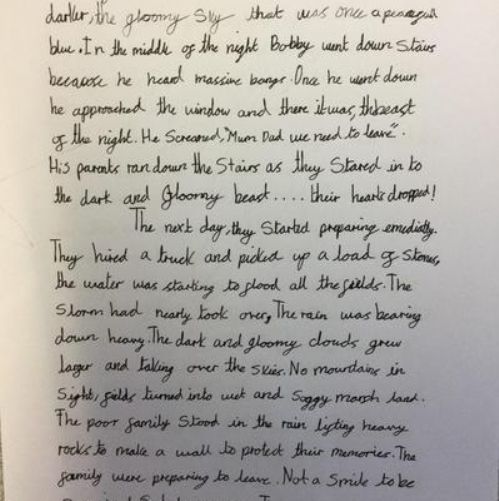 darker, the gloomy sky that was once a
blue. In the middle of the night Bobby went down Stairs
because he heard massive bangs. Once he went down
he approached the window and there it was, the beast
of the night. He Screamed, "Mum Dad we need to leave".
His parents ran down the Stairs as they Stared in to
the dark and gloomy beast.... their hearts dropped!
The next day, they Started preparing emediatly.
They hired a truck and picked up a load of Stones,
the water was starting to flood all the fields. The
Storm had nearly took over, The rain was bearing
down heavy. The dark and gloomy clouds grew
larger and taking over the skies. No mountains in
Sight, fields turned into wet and Soggy marsh land.
The poor family Stood in the rain lifting heavy
rocks to make a wall to protect their memories. The
family were preparing to leave. Not a Smile to be